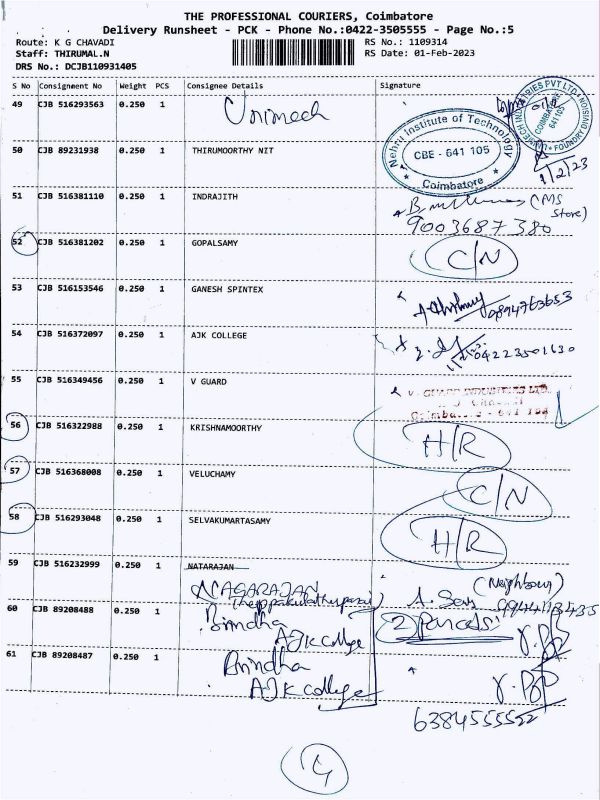 THE PROFESSIONAL COURIERS, Coimbatore
Delivery Runsheet - PCK - Phone No.:0422-3505555 - Page No.:5
Route: K G CHAVADI
RS No.: 1109314
Staff: THIRUMAL.N
RS Date: 01-Feb-2023
DRS No.: DCJB110931405
S No Consignment No Weight PCS Consignee Details Signature
49 CJB 516293563 0.250 1 Unimech
50 CJB 89231938 0.250 1 THIRUMOORTHY NIT
Nehru Institute of Technology
CBE - 641 105
Coimbatore
COIMBATORE
641105
1/2/23
51 CJB 516381110 0.250 1 INDRAJITH
(MS Store)
9003687380
52 CJB 516381202 0.250 1 GOPALSAMY C/N
53 CJB 516153546 0.250 1 GANESH SPINTEX
54 CJB 516372097 0.250 1 AJK COLLEGE
55 CJB 516349456 0.250 1 V GUARD
V. GUARD INDUSTRIES LTD.
56 CJB 516322988 0.250 1 KRISHNAMOORTHY H/R
57 CJB 516368008 0.250 1 VELUCHAMY C/N
58 CJB 516293048 0.250 1 SELVAKUMARTASAMY H/R
59 CJB 516232999 0.250 1 NATARAJAN
NAGARAJAN
(Neighbour)
60 CJB 89208488 0.250 1 Brindha
AJK College
2 Parcels
61 CJB 89208487 0.250 1 Brindha
AJK College
6384555522